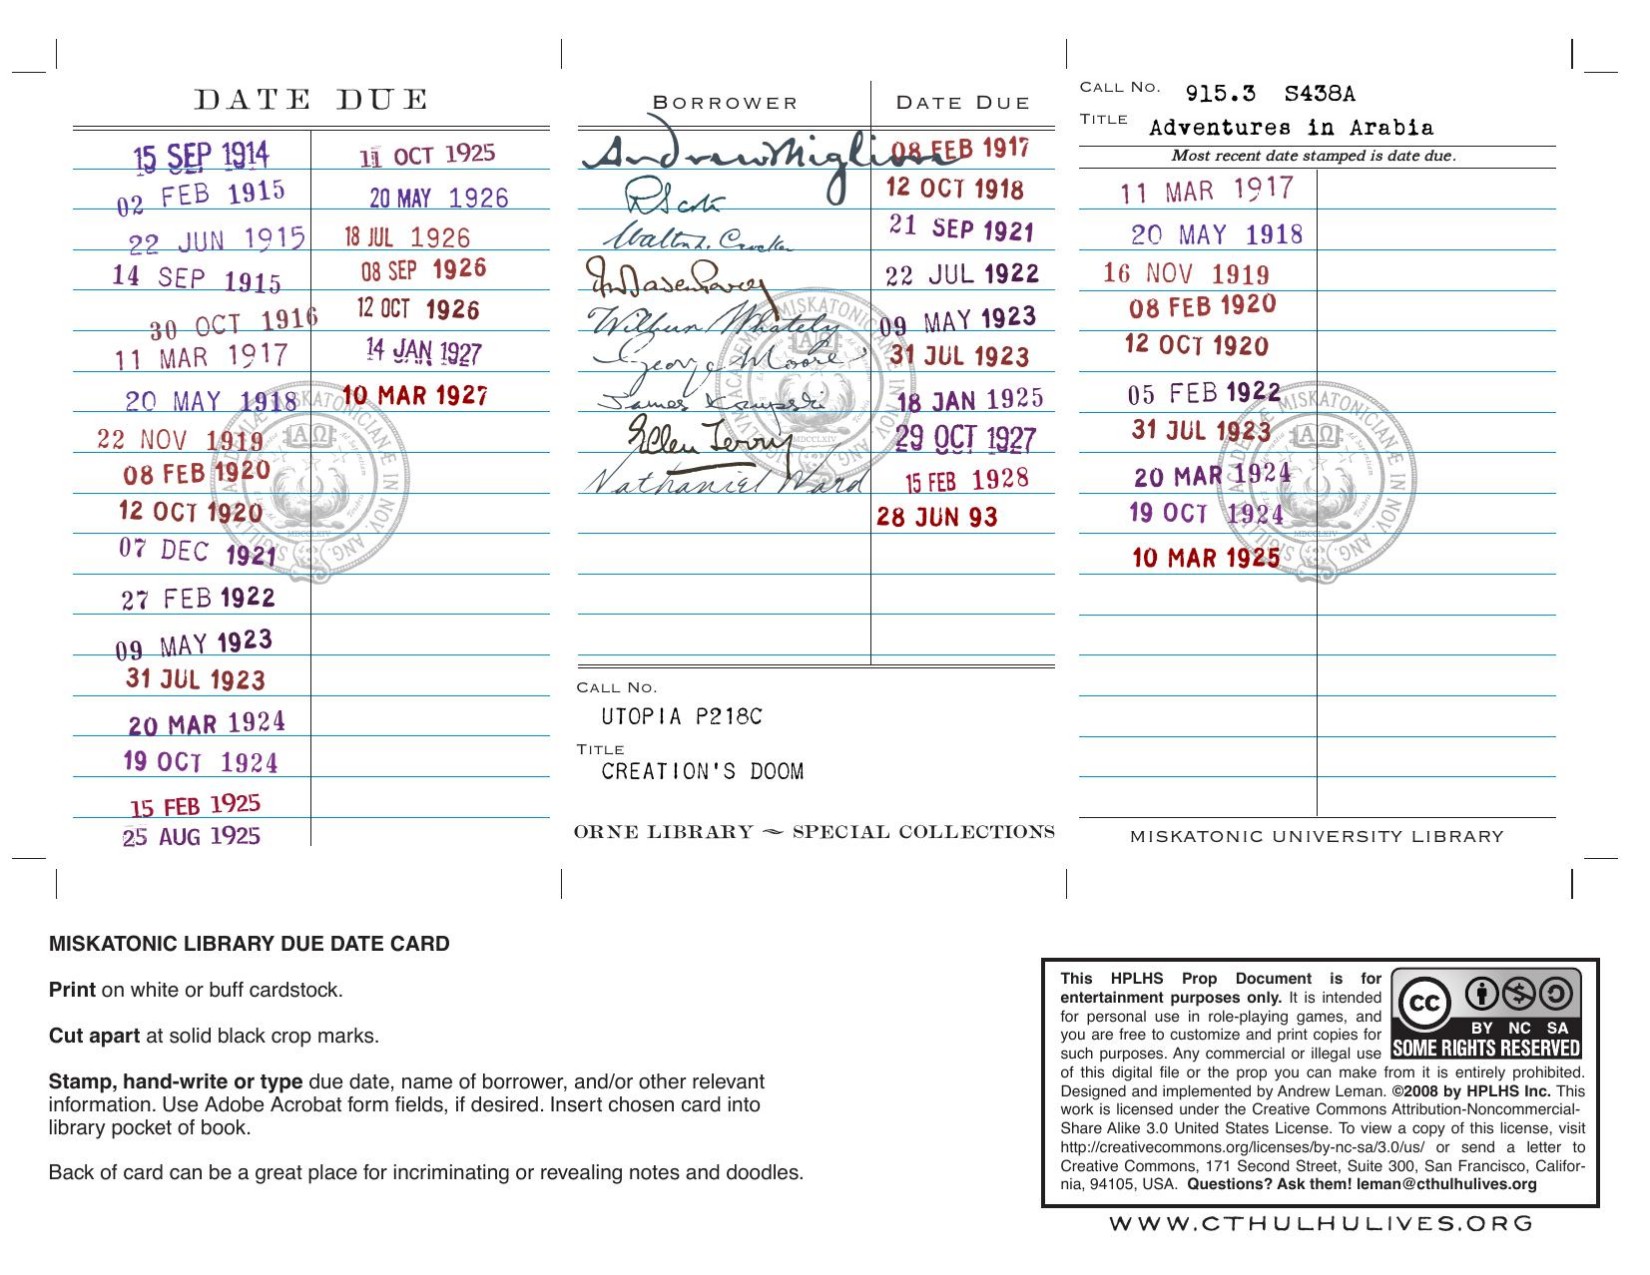 DATE DUE
15 SEP 1914
02 FEB 1915
22 JUN 1915
14 SEP 1915
30 OCT 1916
11 MAR 1917
20 MAY 1918
22 NOV 1919
08 FEB 1920
12 OCT 1920
07 DEC 1921
27 FEB 1922
09 MAY 1923
31 JUL 1923
20 MAR 1924
19 OCT 1924
15 FEB 1925
25 AUG 1925
11 OCT 1925
20 MAY 1926
18 JUL 1926
08 SEP 1926
12 OCT 1926
14 JAN 1927
10 MAR 1927
BORROWER DATE DUE
Andrew Migliore 08 FEB 1917
RScott 12 OCT 1918
Walton 21 SEP 1921
22 JUL 1922
Wilbur Whately 09 MAY 1923
George Moore 31 JUL 1923
James 18 JAN 1925
Ellen Terry 29 OCT 1927
Nathaniel Ward 15 FEB 1928
28 JUN 93
CALL NO.
UTOPIA P218C
TITLE
CREATION'S DOOM
ORNE LIBRARY ~ SPECIAL COLLECTIONS
CALL NO. 915.3 S438A
TITLE Adventures in Arabia
Most recent date stamped is date due.
11 MAR 1917
20 MAY 1918
16 NOV 1919
08 FEB 1920
12 OCT 1920
05 FEB 1922
31 JUL 1923
20 MAR 1924
19 OCT 1924
10 MAR 1925
MISKATONIC UNIVERSITY LIBRARY
MISKATONIC LIBRARY DUE DATE CARD
Print on white or buff cardstock.
Cut apart at solid black crop marks.
Stamp, hand-write or type due date, name of borrower, and/or other relevant
information. Use Adobe Acrobat form fields, if desired. Insert chosen card into
library pocket of book.
Back of card can be a great place for incriminating or revealing notes and doodles.
This HPLHS Prop Document is for
entertainment purposes only. It is intended
for personal use in role-playing games, and
you are free to customize and print copies for
such purposes. Any commercial or illegal use
of this digital file or the prop you can make from it is entirely prohibited.
Designed and implemented by Andrew Leman. ©2008 by HPLHS Inc. This
work is licensed under the Creative Commons Attribution-Noncommercial-
Share Alike 3.0 United States License. To view a copy of this license, visit
http://creativecommons.org/licenses/by-nc-sa/3.0/us/ or send a letter to
Creative Commons, 171 Second Street, Suite 300, San Francisco, Califor-
nia, 94105, USA. Questions? Ask them! leman@cthulhulives.org
cc
BY NC SA
SOME RIGHTS RESERVED
WWW.CTHULHULIVES.ORG